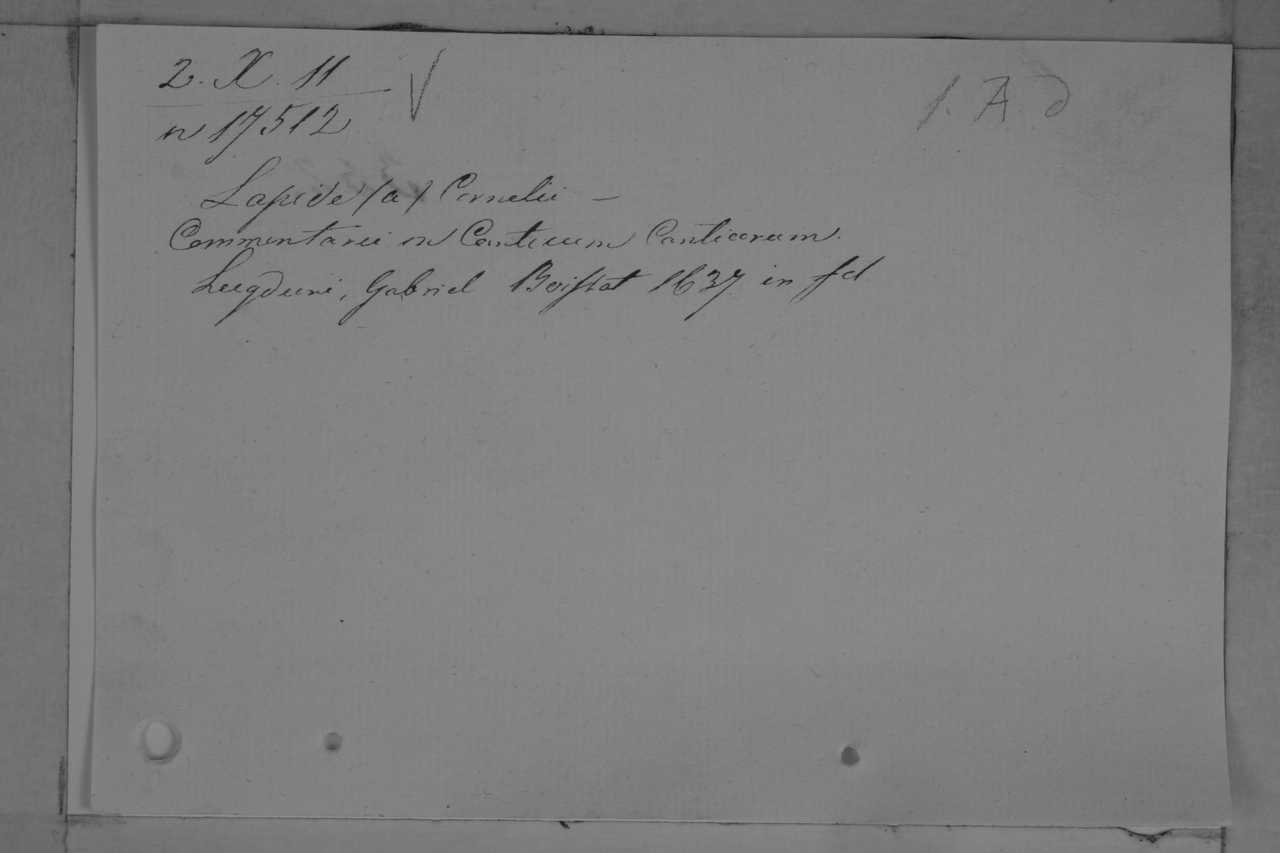 2. X. 11
n 17512
1. A. d
Lapide (a) Cornelii –
Commentarii in Canticum Canticorum.
Lugduni, Gabriel Boissat 1637 in fol